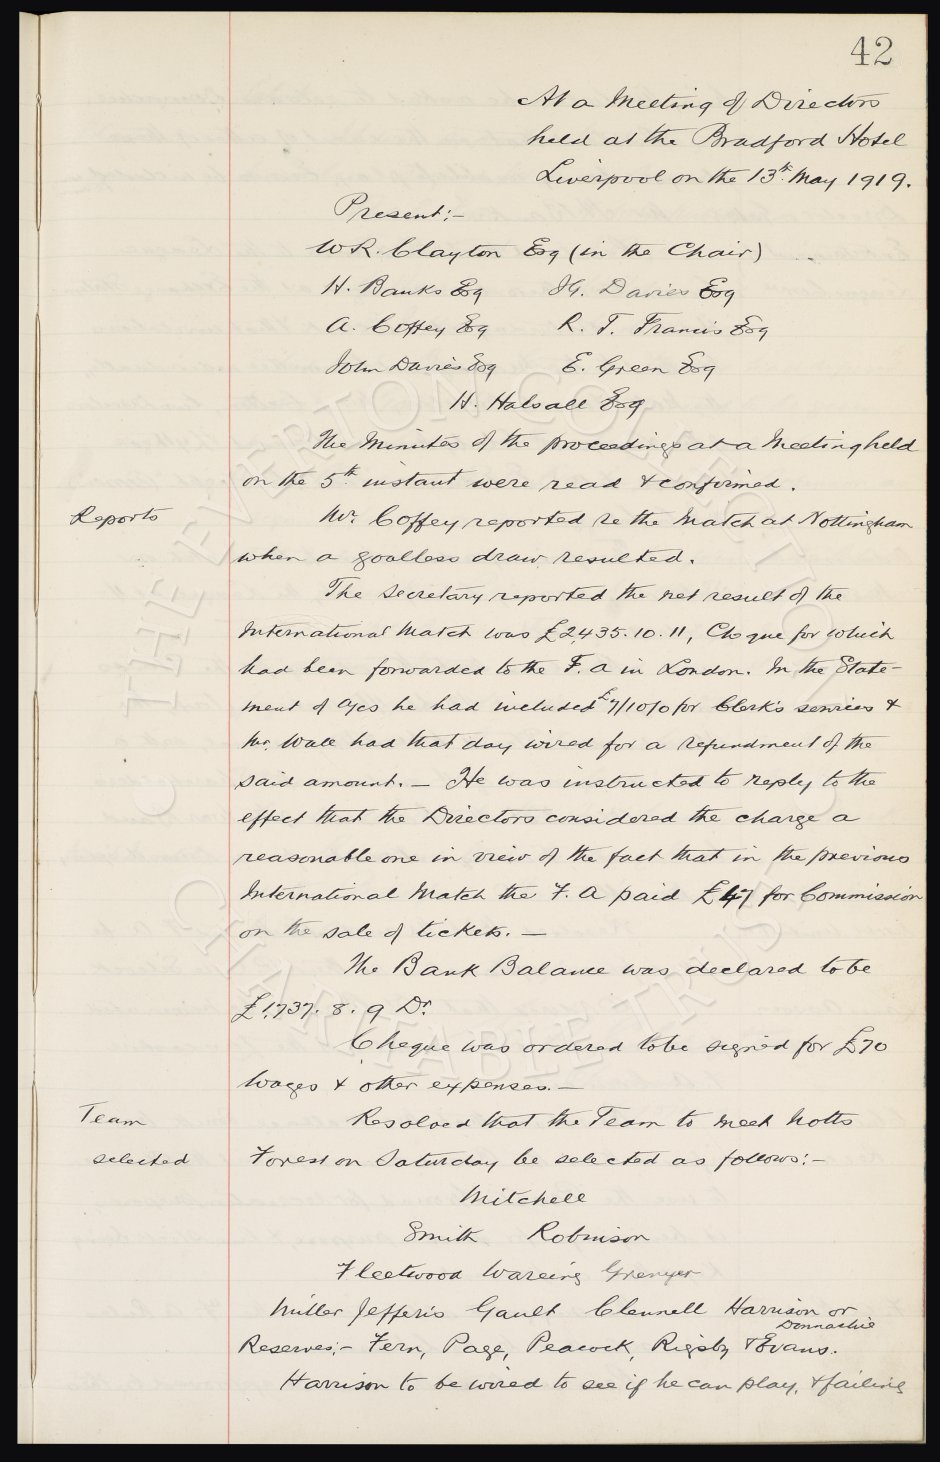 42
At a Meeting of Directors
held at the Bradford Hotel
Liverpool on the 13th May 1919.
Present:-
W R. Clayton Esq (in the Chair)
H. Banks Esq   Davies Esq
A. Coffey Esq   R. T. Francis Esq
John Davies Esq   E. Green Esq
H. Halsall Esq
The Minutes of the proceedings at a Meeting held
on the 5th instant were read & confirmed.
Reports
Mr. Coffey reported re the Match at Nottingham
when a goalless draw resulted.
The Secretary reported the net result of the
International Match was £2,435.10.11, Cheque for which
had been forwarded to the F.A in London. In the State-
ment of A/cs he had included £7/10/0 for Clerk's services &
Mr. Wall had that day wired for a refundment of the
said amount. — He was instructed to reply to the
effect that the Directors considered the charge a
reasonable one in view of the fact that in the previous
International Match the F.A paid £47 for Commission
on the sale of tickets. —
The Bank Balance was declared to be
£1,737. 8. 9 Dr.
Cheque was ordered to be signed for £70
Wages & other expenses. —
Team
selected
Resolved that the Team to meet Notts
Forest on Saturday be selected as follows:-
Mitchell
Smith   Robinson
Fleetwood   Wareing   Grenyer
Miller   Jefferis   Gault   Clennell   Harrison or
Donnachie
Reserves:- Fern, Page, Peacock, Rigsby & Evans.
Harrison to be wired to see if he can play, & failing